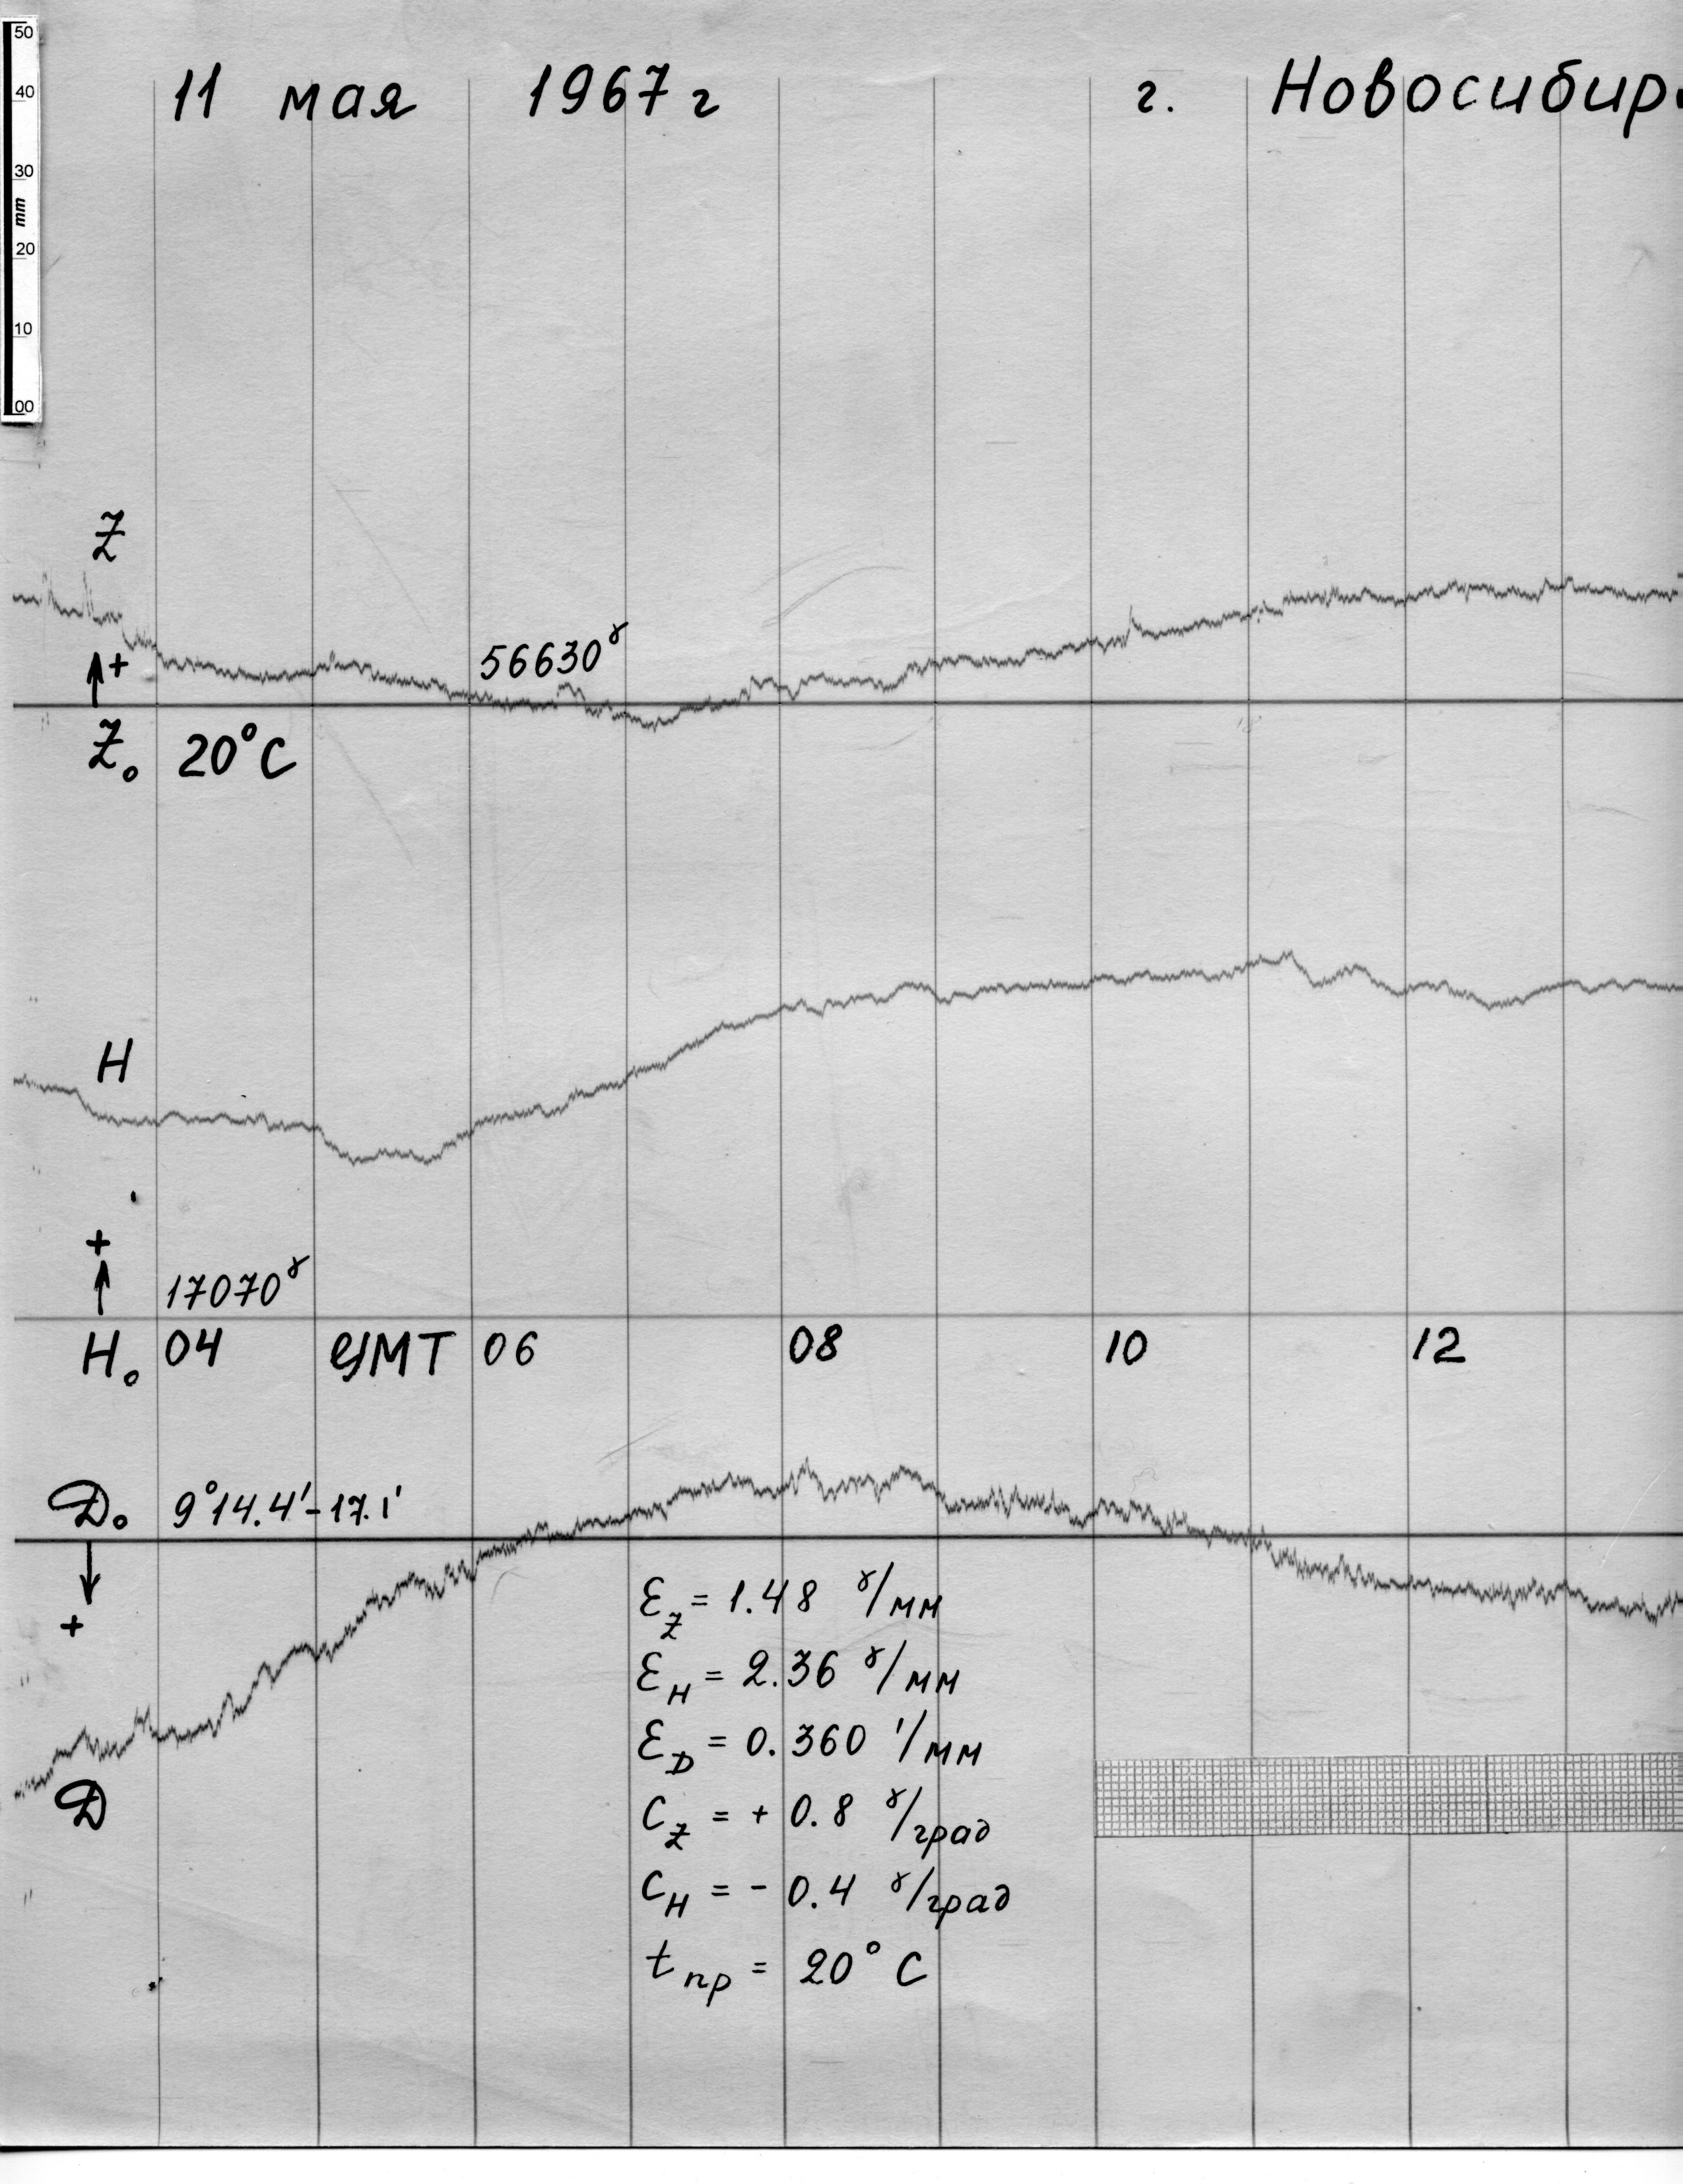 50
40
30
mm
20
10
00
11 мая 1967 г г. Новосибир
Z
56630ɤ
↑+
Z₀ 20°C
H
+
↑
17070ɤ
H₀ 04 GMT 06 08 10 12
D₀ 9°14.4'-17.1'
↓
+
Ɛ_Z = 1.48 ɤ/мм
Ɛ_H = 2.36 ɤ/мм
Ɛ_D = 0.360 '/мм
D
C_Z = + 0.8 ɤ/град
C_H = - 0.4 ɤ/град
t_пр = 20° C